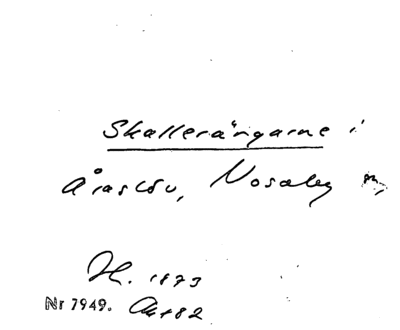 Skallerängarne i
Åraslöv, Nosaby
H. 1873
Nr 7949. Akt 82